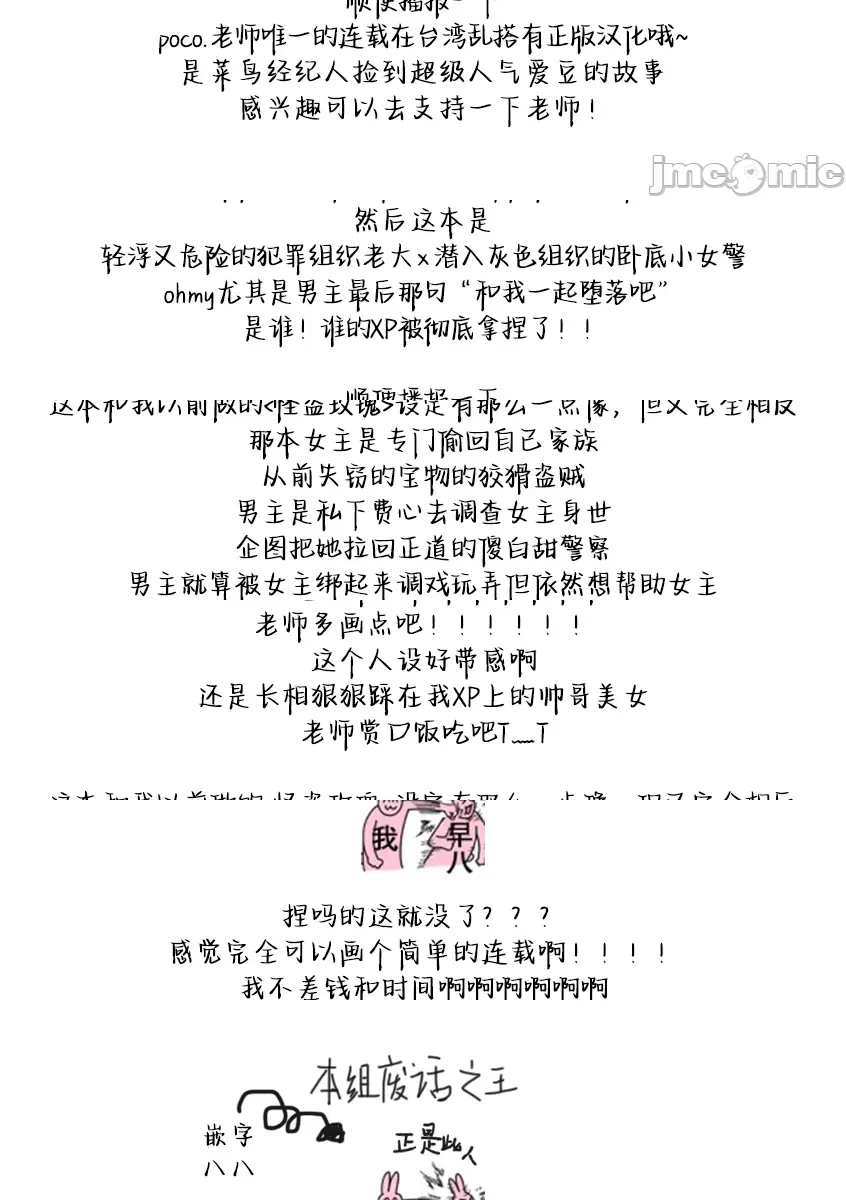 顺便播报一下
poco.老师唯一的连载在台湾乱搭有正版汉化哦~
是菜鸟经纪人捡到超级人气爱豆的故事
感兴趣可以去支持一下老师!
jmcomic
然后这本是
轻浮又危险的犯罪组织老大x潜入灰色组织的卧底小女警
ohmy尤其是男主最后那句“和我一起堕落吧”
是谁!谁的XP被彻底拿捏了!!
这本和我以前做的<怪盗玫瑰>设定有那么一点像, 但又完全相反
那本女主是专门偷回自己家族
从前失窃的宝物的狡猾盗贼
男主是私下费心去调查女主身世
企图把她拉回正道的傻白甜警察
男主就算被女主绑起来调戏玩弄但依然想帮助女主
老师多画点吧!!!!!!
这个人设好带感啊
还是长相狠狠踩在我XP上的帅哥美女
老师赏口饭吃吧T﹏T
我
早八
捏吗的这就没了???
感觉完全可以画个简单的连载啊!!!!
我不差钱和时间啊啊啊啊啊啊
本组废话之王
嵌字
八八
正是此人